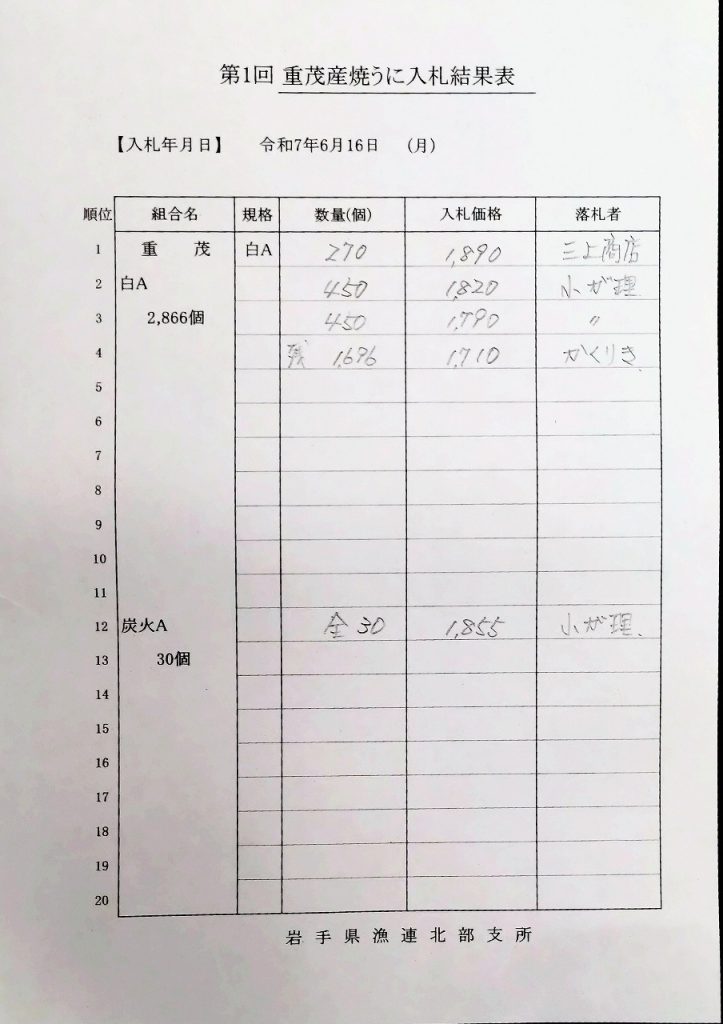 第1回 重茂産焼うに入札結果表
【入札年月日】 令和7年6月16日 (月)
順位 組合名 規格 数量(個) 入札価格 落札者
1 重 茂 白A 270 1,890 三上商店
2 白A 450 1,820 小が理
3 2,866個 450 1,790 〃
4 残 1,696 1,710 かくりき
5
6
7
8
9
10
11
12 炭火A 全 30 1,855 小が理
13 30個
14
15
16
17
18
19
20
岩手県漁連北部支所